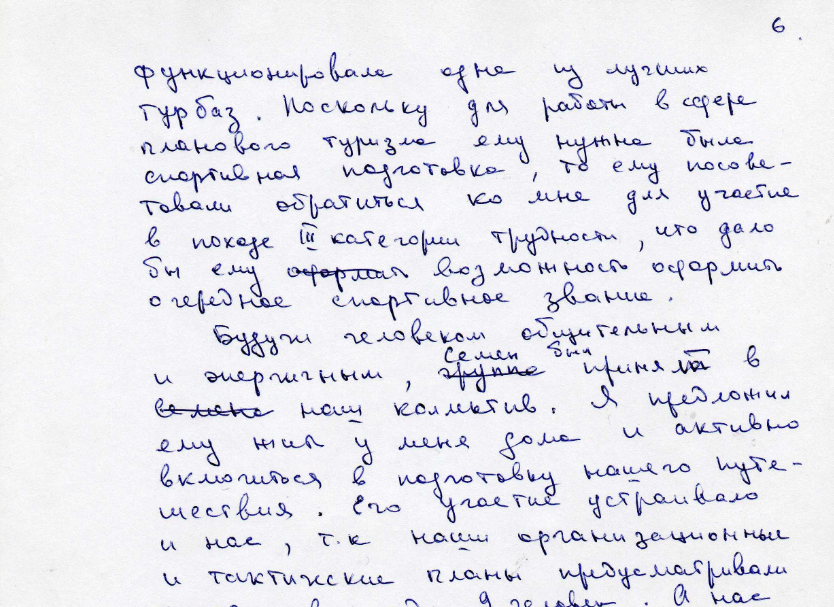 6.
функционировала одна из лучших
турбаз. Поскольку для работы в сфере
планового туризма ему нужна была
спортивная подготовка, то ему посове-
товали обратиться ко мне для участие
в походе III категории трудности, что дало
бы ему оформить возможность оформить
очередное спортивное звание.
Будучи человеком общительным
Семен был
и энергичным, группа принят в
Семена наш коллектив. Я предложил
ему жить у меня дома и активно
включиться в подготовку нашего путе-
шествия. Его участие устраивало
и нас, т.к наши организационные
и тактические планы предусматривали
9 человек. А нас